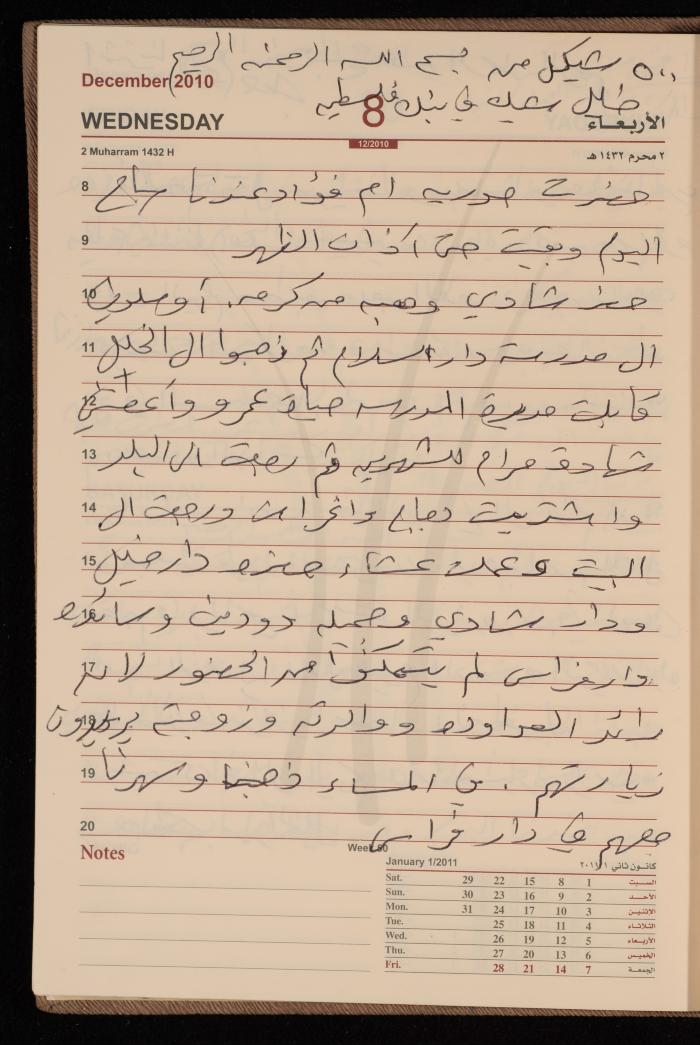 ٥٠٠ شيكل من بسم الله الرحمن الرحيم
December 2010
في بنك فلسطين
WEDNESDAY 8 الأربعاء
12/2010
2 Muharram 1432 H ٢ محرم ١٤٣٢ هـ
8 حضرت صوريه ام فؤاد عندنا صباح
9 اليوم وبقيت حتى آذان الظهر
10 حضر شادي وهبه من كرمه. أوصلوني
11 الى مدرسة دار السلام ثم ذهبوا الى الخليل
12 قابلت مديرة المدرسه عمرو وأعطتني
13 شهادة مرام ثم رجعت الى البلد
14 واشتريت دجاج واغراض ورجعت الى
15 البيت وعملت عشاء حضره دار خليل
16 ودار شادي وجميله دودين
17 دار فراس لم يتمكنوا من الحضور لان
18 رائد العواوده ووالدته وزوجته يريدون
19 زيارتهم. في المساء ذهبنا وسهرنا
20 معهم في دار فراس
Notes
Week 50
January 1/2011 كانون ثاني ٢٠١١/١
Sat. 29 22 15 8 1 السبت
Sun. 30 23 16 9 2 الأحد
Mon. 31 24 17 10 3 الاثنين
Tue. 25 18 11 4 الثلاثاء
Wed. 26 19 12 5 الأربعاء
Thu. 27 20 13 6 الخميس
Fri. 28 21 14 7 الجمعة